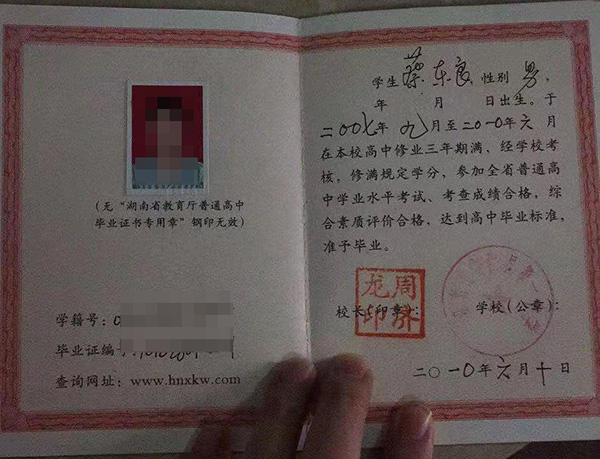 (无“湖南省教育厅普通高中
毕业证书专用章”钢印无效)
学籍号:
毕业证编号:
查询网址: www.hnxkw.com
学生 蔡东良,性别 男,
年 月 日出生。于
二00七年 九月至二0一0年六月
在本校高中修业三年期满、经学校考
核,修满规定学分,参加全省普通高
中学业水平考试、考查成绩合格,综
合素质评价合格,达到高中毕业标准,
准予毕业。
校长(印章): 学校(公章):
周济龙印
二〇一0年六月十日